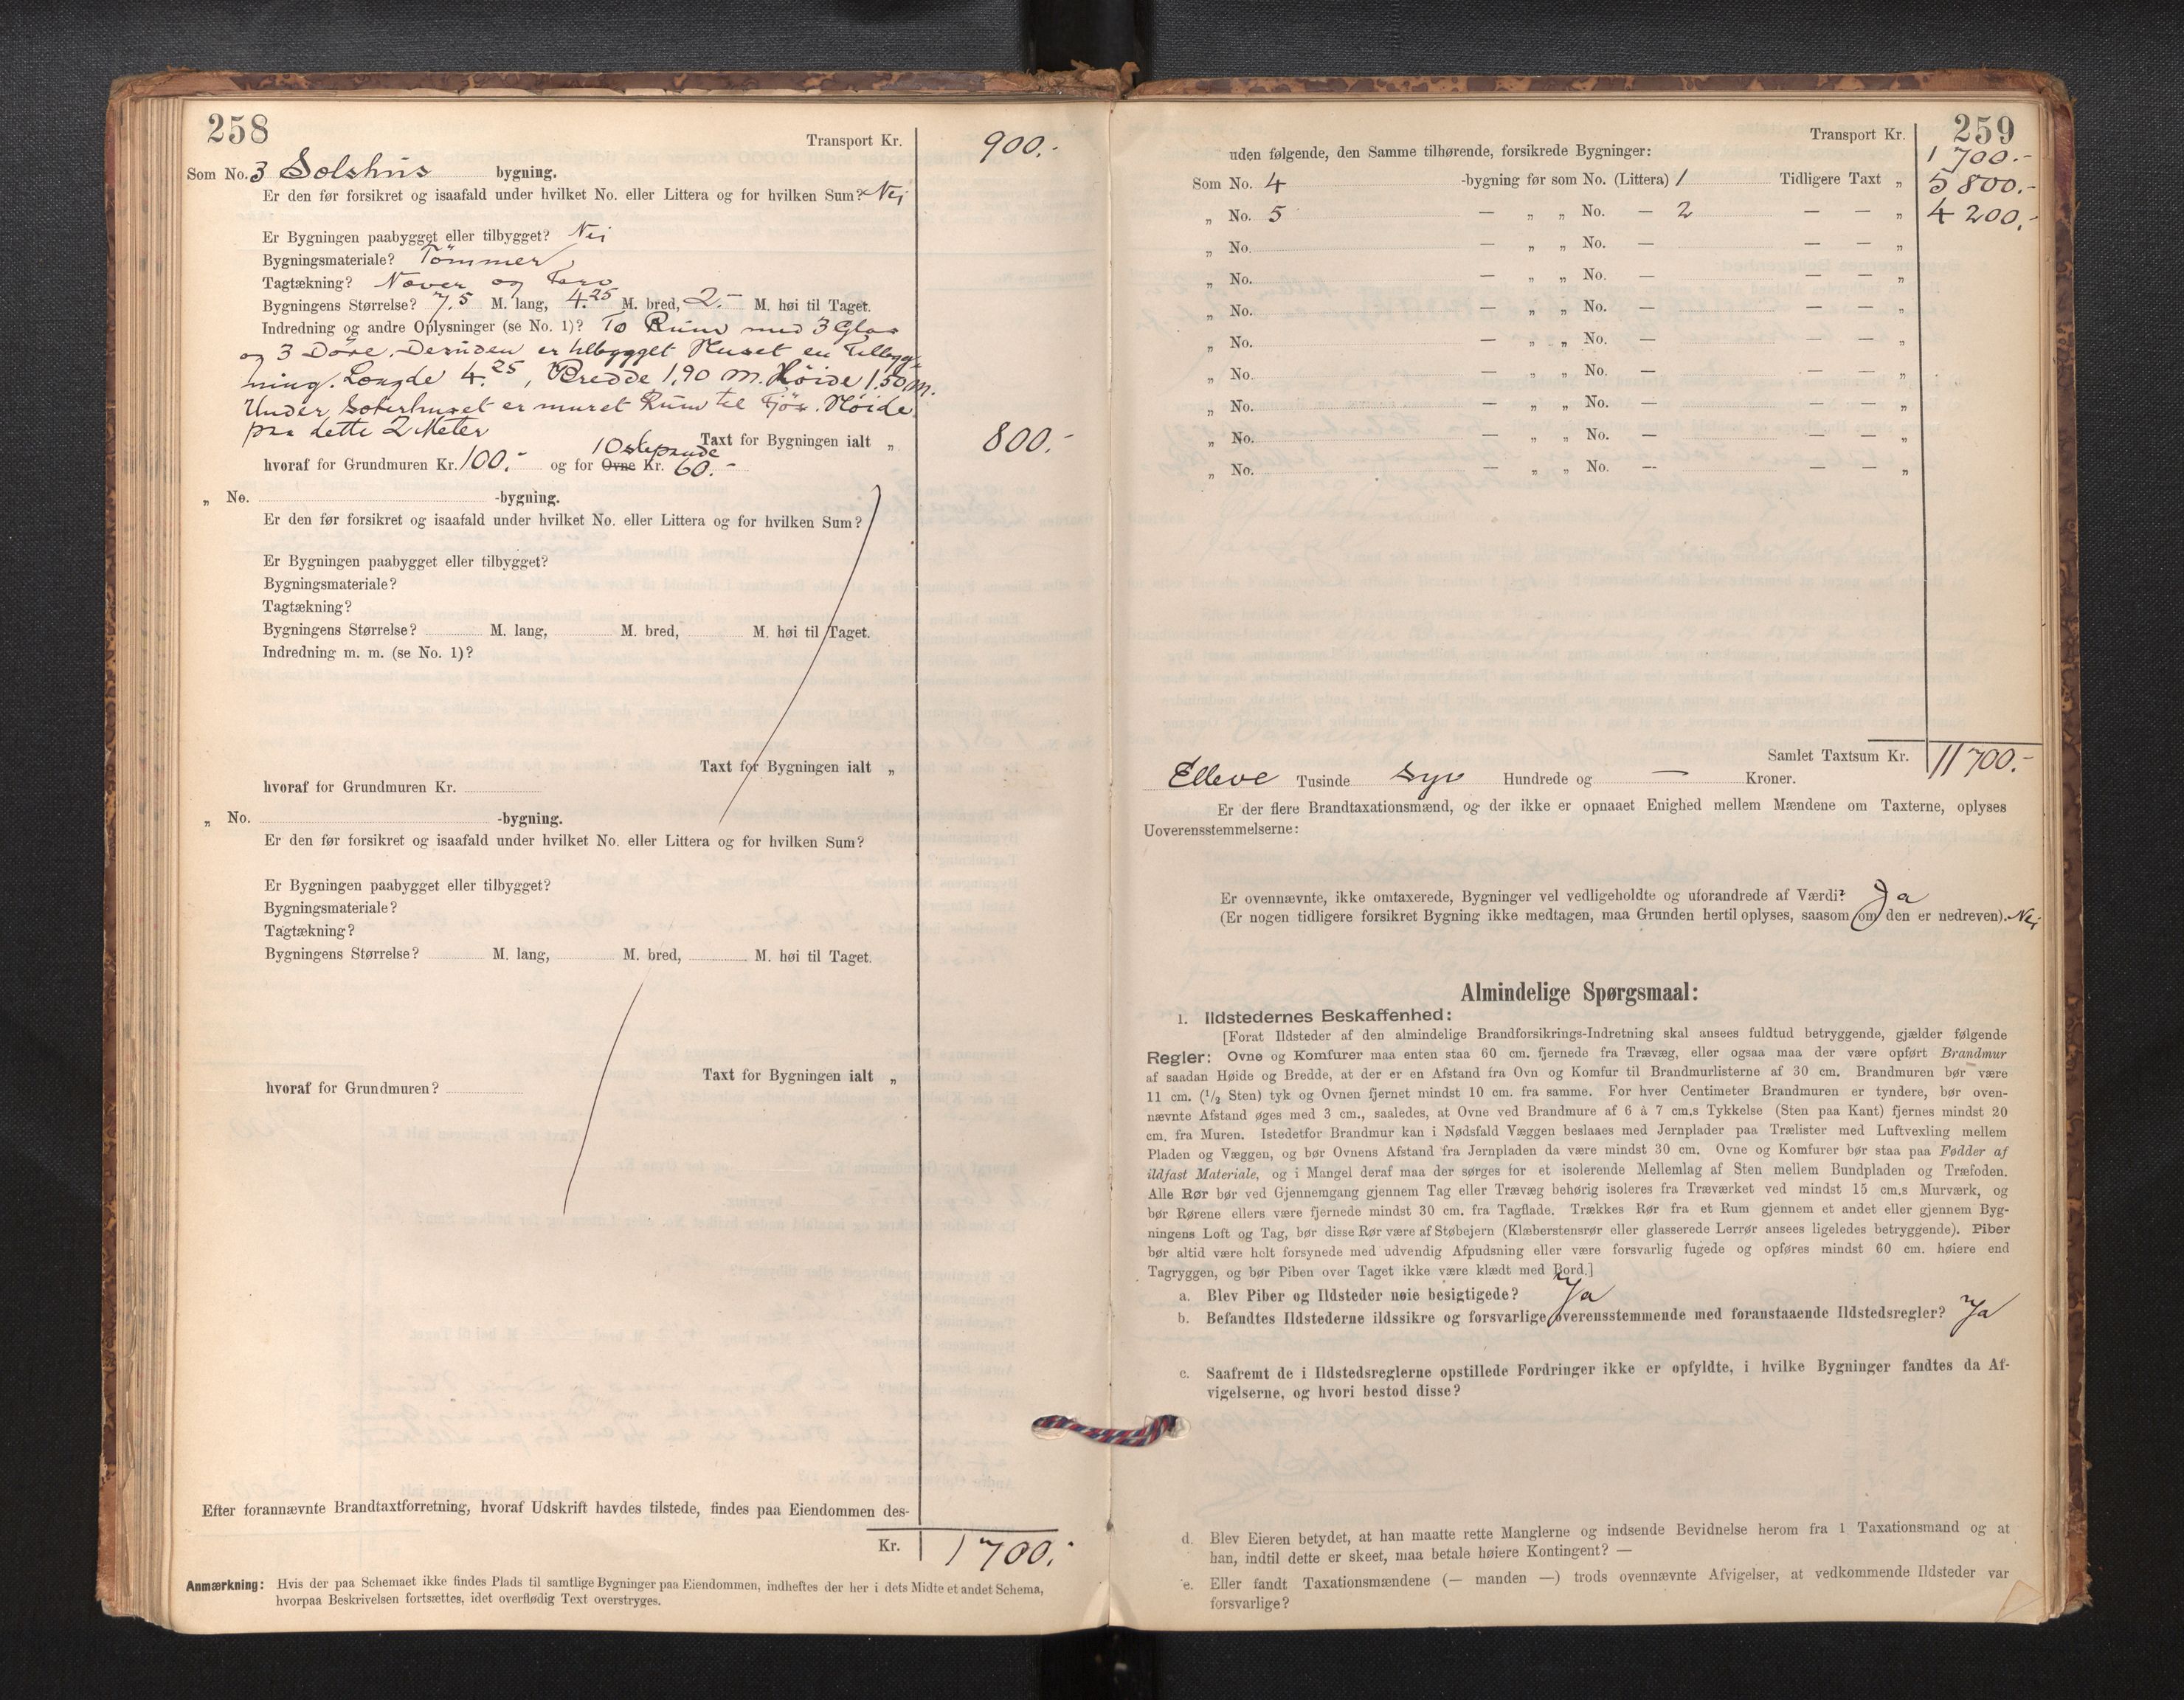 258
Transport Kr. 900.-
Som No. 3 Solshus bygning.
Er den før forsikret og isaafald under hvilket No. eller Littera og for hvilken Sum? Nei
Er Bygningen paabygget eller tilbygget? Nei
Bygningsmateriale? Tömmer
Tagtækning? Never og Torv
Bygningens Størrelse? 7,5 M. lang, 4.25 M. bred, 2.- M. høi til Taget.
Indredning og andre Oplysninger (se No. 1)? To Rum med 3 Glas
og 3 Döre. Desuden er tilbygget Huset en Tilbyg-
ning. Længde 4.25, Bredde 1,90 M. Höide 1.50 M.
Under Soterhuset er muret Rum til Fjös. Höide
paa dette 2 Meter
Taxt for Bygningen ialt „ 800.-
hvoraf for Grundmuren Kr. 100.- og for Ovne Kr. 60.-
1 Ostepande
„ No. -bygning.
Er den før forsikret og isaafald under hvilket No. eller Littera og for hvilken Sum?
Er Bygningen paabygget eller tilbygget?
Bygningsmateriale?
Tagtækning?
Bygningens Størrelse? M. lang, M. bred, M. høi til Taget.
Indredning m. m. (se No. 1)?
Taxt for Bygningen ialt „
hvoraf for Grundmuren Kr.
„ No. -bygning.
Er den før forsikret og isaafald under hvilket No. eller Littera og for hvilken Sum?
Er Bygningen paabygget eller tilbygget?
Bygningsmateriale?
Tagtækning?
Bygningens Størrelse? M. lang, M. bred, M. høi til Taget.
Taxt for Bygningen ialt „
hvoraf for Grundmuren?
Efter forannævnte Brandtaxtforretning, hvoraf Udskrift havdes tilstede, findes paa Eiendommen des-
Kr. 1700.-
Anmærkning: Hvis der paa Schemaet ikke findes Plads til samtlige Bygninger paa Eiendommen, indheftes der her i dets Midte et andet Schema,
hvorpaa Beskrivelsen fortsættes, idet overflødig Text overstryges.
259
Transport Kr. 1700.-
uden følgende, den Samme tilhørende, forsikrede Bygninger:
Som No. 4 -bygning før som No. (Littera) 1 Tidligere Taxt „ 5800.-
„ No. 5 — „ „ No. — 2 — — „ 4200.-
„ No. — „ „ No. — — — „
„ No. — „ „ No. — — — „
„ No. — „ „ No. — — — „
„ No. — „ „ No. — — — „
„ No. — „ „ No. — — — „
„ No. — „ „ No. — — — „
„ No. — „ „ No. — — — „
„ No. — „ „ No. — — — „
Samlet Taxtsum Kr. 11700.-
Elleve Tusinde Syv Hundrede og — Kroner.
Er der flere Brandtaxationsmænd, og der ikke er opnaaet Enighed mellem Mændene om Taxterne, oplyses
Uoverensstemmelserne:
Er ovennævnte, ikke omtaxerede, Bygninger vel vedligeholdte og uforandrede af Værdi? Ja
(Er nogen tidligere forsikret Bygning ikke medtagen, maa Grunden hertil oplyses, saasom om den er nedreven). Nei
Almindelige Spørgsmaal:
1. Ildstedernes Beskaffenhed:
[Forat Ildsteder af den almindelige Brandforsikrings-Indretning skal ansees fuldtud betryggende, gjælder følgende
Regler: Ovne og Komfurer maa enten staa 60 cm. fjernede fra Trævæg, eller ogsaa maa der være opført Brandmur
af saadan Høide og Bredde, at der er en Afstand fra Ovn og Komfur til Brandmurlisterne af 30 cm. Brandmuren bør være
11 cm. (1/2 Sten) tyk og Ovnen fjernet mindst 10 cm. fra samme. For hver Centimeter Brandmuren er tyndere, bør oven-
nævnte Afstand øges med 3 cm., saaledes, at Ovne ved Brandmure af 6 à 7 cm.s Tykkelse (Sten paa Kant) fjernes mindst 20
cm. fra Muren. Istedetfor Brandmur kan i Nødsfald Væggen beslaaes med Jernplader paa Trælister med Luftvexling mellem
Pladen og Væggen, og bør Ovnens Afstand fra Jernpladen da være mindst 30 cm. Ovne og Komfurer bør staa paa Fødder af
ildfast Materiale, og i Mangel deraf maa der sørges for et isolerende Mellemlag af Sten mellem Bundpladen og Træfoden.
Alle Rør bør ved Gjennemgang gjennem Tag eller Trævæg behørig isoleres fra Træværket ved mindst 15 cm.s Murværk, og
bør Rørene ellers være fjernede mindst 30 cm. fra Tagflade. Trækkes Rør fra et Rum gjennem et andet eller gjennem Byg-
ningens Loft og Tag, bør disse Rør være af Støbejern (Klæberstensrør eller glasserede Lerrør ansees ligeledes betryggende). Piber
bør altid være helt forsynede med udvendig Afpudsning eller være forsvarlig fugede og opføres mindst 60 cm. høiere end
Tagryggen, og bør Piben over Taget ikke være klædt med Bord.]
a. Blev Piber og Ildsteder nøie besigtigede? Ja
b. Befandtes Ildstederne ildssikre og forsvarlige overensstemmende med foranstaaende Ildstedsregler? Ja
c. Saafremt de i Ildstedsreglerne opstillede Fordringer ikke er opfyldte, i hvilke Bygninger fandtes da Af-
vigelserne, og hvori bestod disse?
d. Blev Eieren betydet, at han maatte rette Manglerne og indsende Bevidnelse herom fra 1 Taxationsmand og at
han, indtil dette er skeet, maa betale høiere Kontingent? —
e. Eller fandt Taxationsmændene (— manden —) trods ovennævnte Afvigelser, at vedkommende Ildsteder var
forsvarlige?